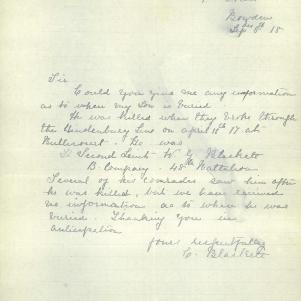 Bowden
Sep 8th 18
Sir
Could you give me any information
as to when my Son is buried
He was killed when they broke through
the Hindenburg Line on april 11th 17 at
Bullecourt. He was
Second Lieut W G Blaskett
B Company 48th Battalion
Several of his comrades saw him after
he was killed, but we have received
no information as to where he was
buried. Thanking you in
anticipation
yours respectfully
C. Blaskett